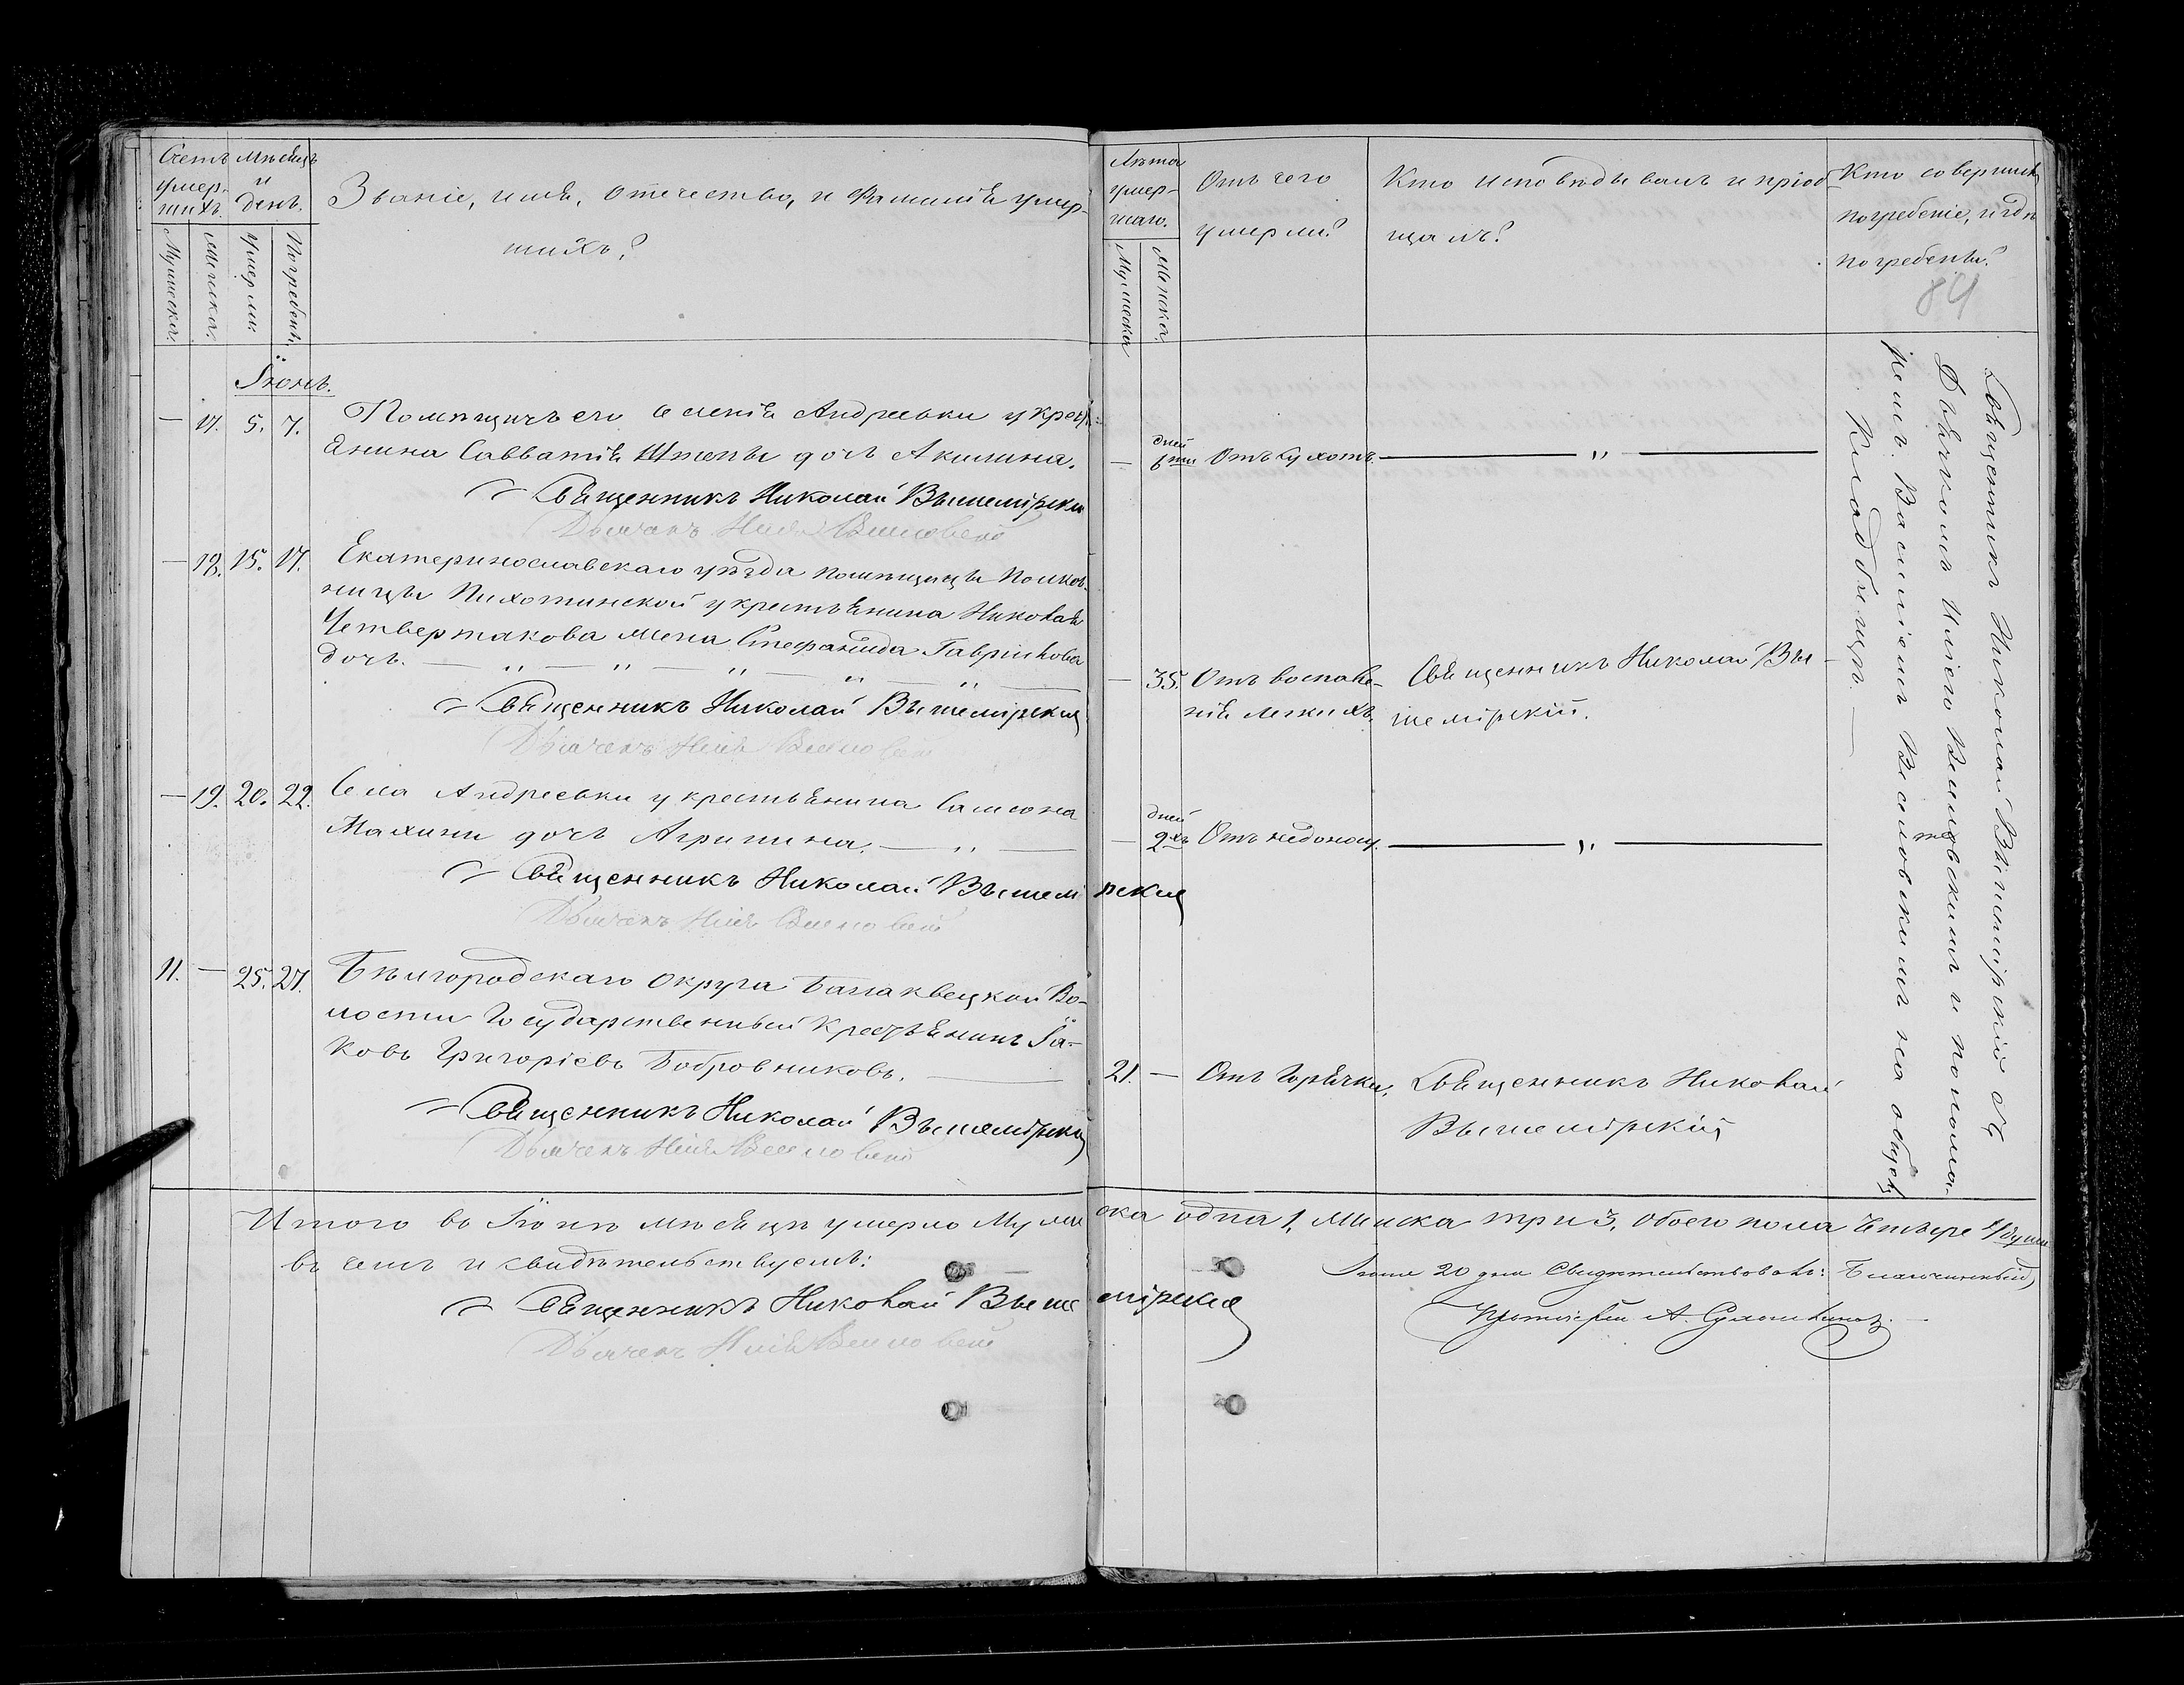 Счетъ умер-
шихъ.
Мѣсяцъ
и
день.
Званіе, имя, отечество, и фамилія умер-
шихъ?
Мужеска.
Женска.
Умерли.
Погребены.
Лѣта
умер-
шаго.
Мужеска
Женска.
Отъ чего
умерли?
Кто исповѣдывалъ и пріоб-
щалъ?
Кто совершилъ
погребеніе, и гдѣ
погребены?
84
Іюнь.
— 17. 5. 7. Помѣщичьего селенія Андреевки у кресть-
янина Савватія дочь Акилина.
Священникъ Николай Вышемірскій
Дьячекъ Илія
— дней 6ти Отъ сухотъ. — „ —
— 18. 15. 17. Екатеринославскаго уѣзда помѣщицы Полков-
ницы Пихотинской у крестьянина Николая
Четвертакова жена Стефанида Гавріилова
дочь. — „ — „ — „ — „ — „ —
Священникъ Николай Вышемірскій
Дьячекъ Илія
— 35. Отъ воспале-
нія легкихъ.
Священникъ Николай Вы-
шемірскій.
— 19. 20. 22. Села Андреевки у крестьянина Самсона
Махини дочь Агрипина. — „ —
Священникъ Николай Вышемірскій
Дьячекъ Илія
— дней 2хъ Отъ недоноск. — „ —
11. — 25. 27. Бѣлгородскаго округа Во-
лости Государственный Крестьянинъ Іа-
ковъ Григоріевъ Бобровниковъ. —
Священникъ Николай Вышемірскій
Дьячекъ Илія
21. — Отъ Горячки.
Священникъ Николай
Вышемірскій
Священникъ Николай Вышемірскій съ
Дьячкомъ Иліею и понома-
ремъ Василіемъ на общемъ
Кладбищѣ. —
Итого въ Іюнѣ мѣсяцѣ умерло Мужеска одна 1, Женска три 3, обоего пола четыре 4 души
въ чемъ и свидѣтельствуемъ:
Священникъ Николай Вышемірскій
Дьячекъ Илія
20 дня Свидѣтельствовалъ: Благочинный,
Протоіерей А.